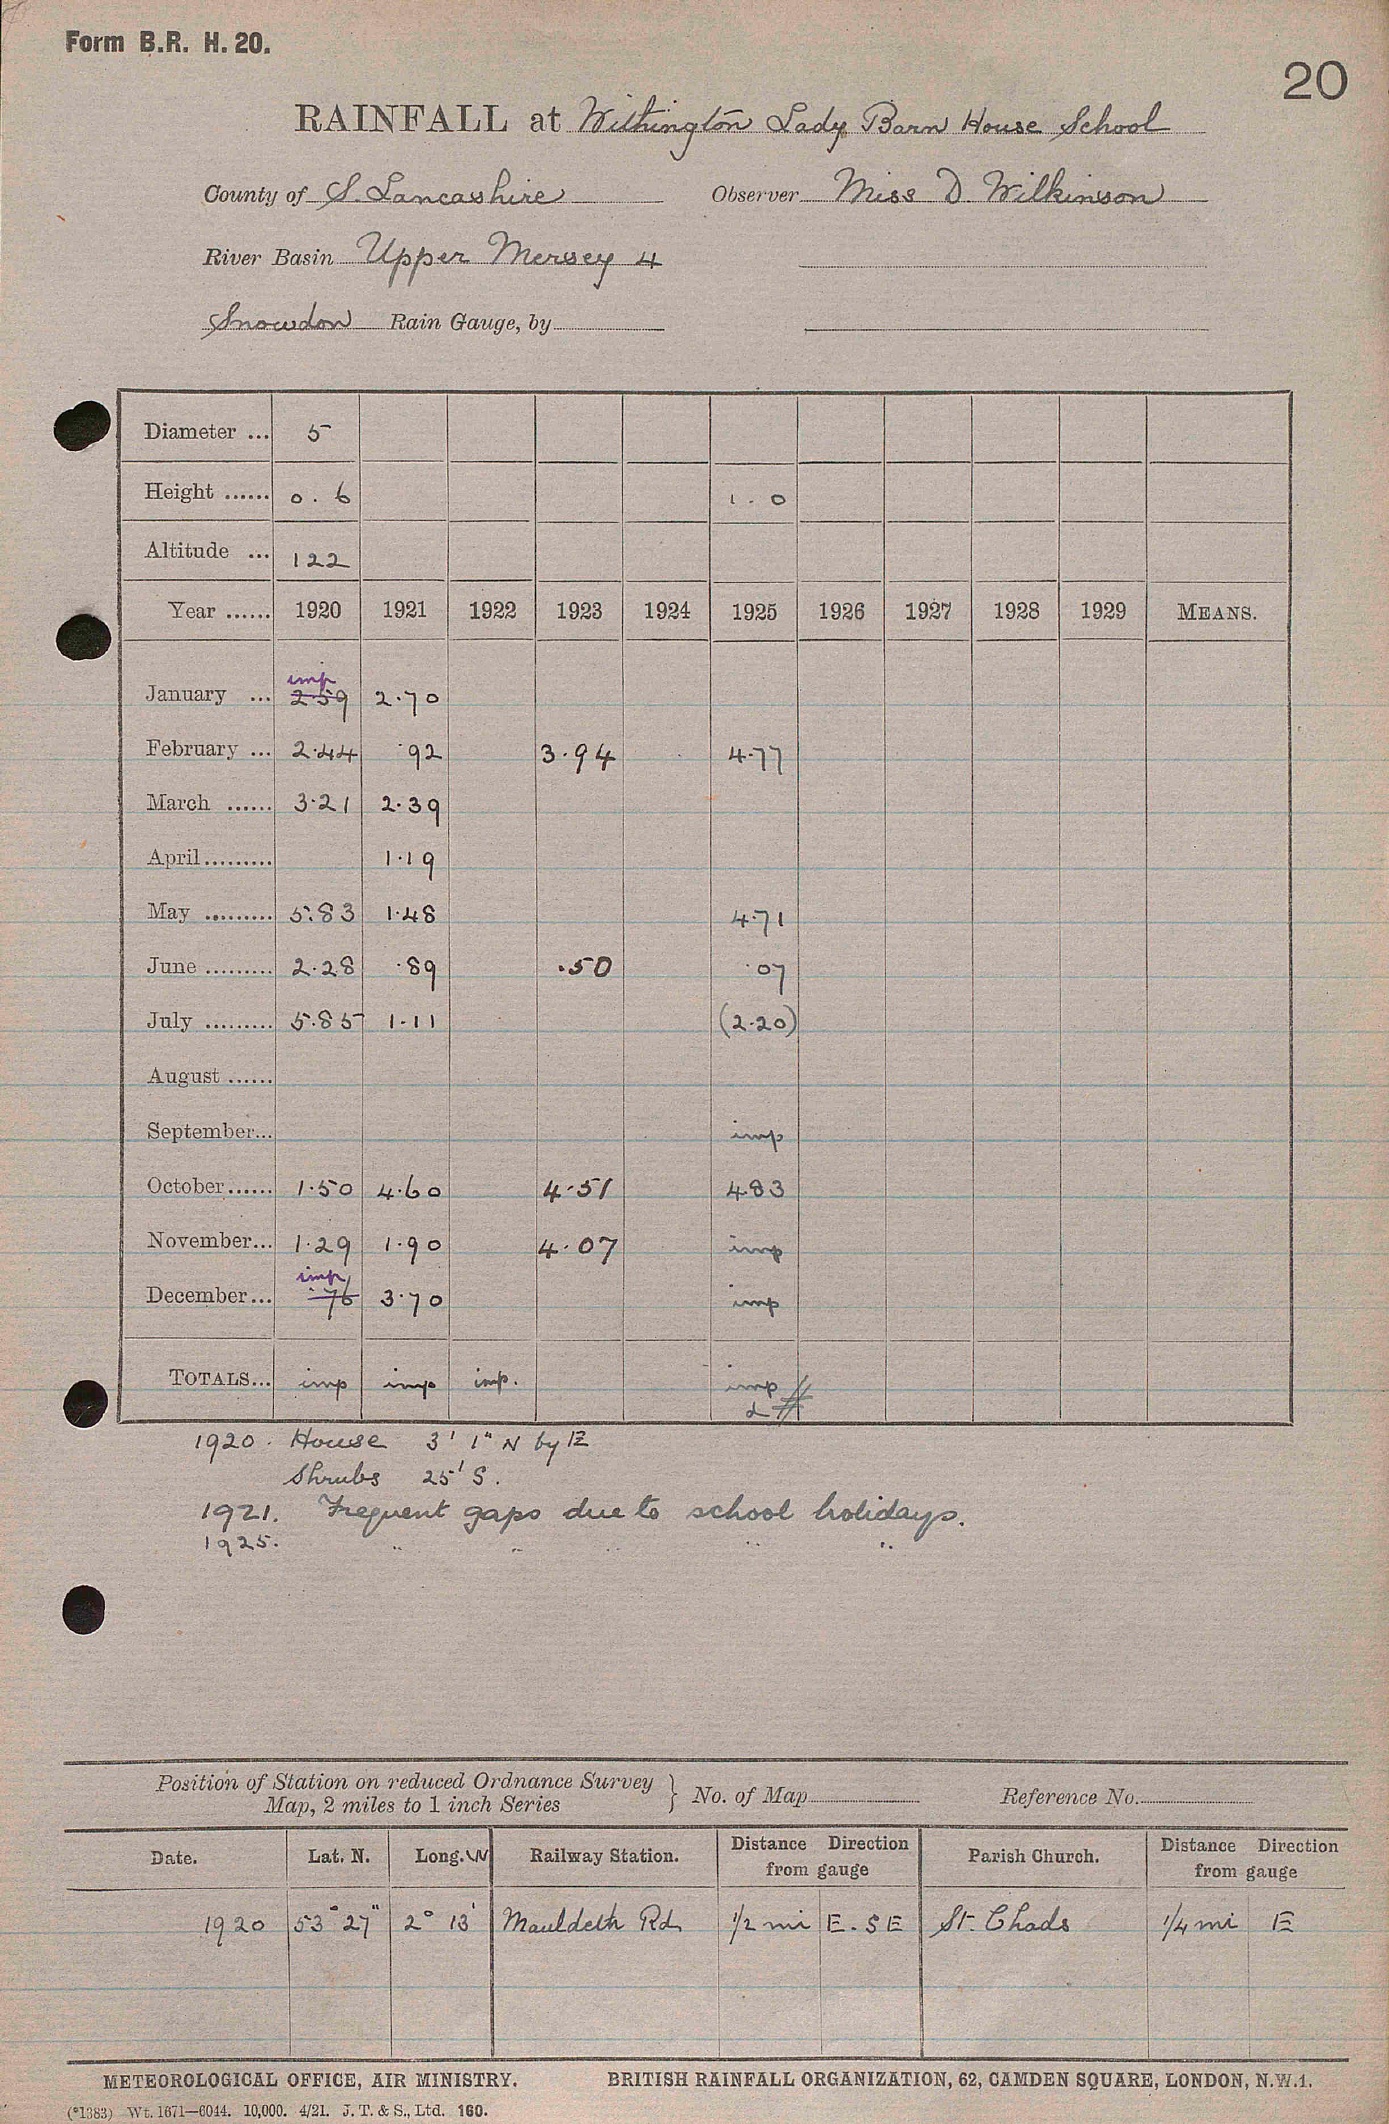 Form B.R. H. 20.
20
RAINFALL at Withington Lady Barn House School
County of S. Lancashire Observer Miss D. Wilkinson
River Basin Upper Mersey 4
Snowdon Rain Gauge, by
Diameter ... 5
Height ...... 0.6 1.0
Altitude ... 122
Year ...... 1920 1921 1922 1923 1924 1925 1926 1927 1928 1929 MEANS.
imp
January ... 2.59 2.70
February ... 2.44 .92 3.94 4.77
March ...... 3.21 2.39
April......... 1.19
May ......... 5.83 1.48 4.71
June ......... 2.28 .89 .50 .07
July ......... 5.85 1.11 (2.20)
August ......
September... imp
October...... 1.50 4.60 4.51 4.83
November... 1.29 1.90 4.07 imp
imp
December... .76 3.70 imp
TOTALS... imp imp imp. imp
1920. House 3' 1" N by E
Shrubs 25' S.
1921. Frequent gaps due to school holidays.
1925. " " " " "
Position of Station on reduced Ordnance Survey
Map, 2 miles to 1 inch Series } No. of Map Reference No.
Date. Lat. N. Long. W Railway Station. Distance Direction from gauge Parish Church. Distance Direction from gauge
1920 53° 27" 2° 13' Mauldeth Rd. 1/2 mi E. SE St. Chads 1/4 mi E
METEOROLOGICAL OFFICE, AIR MINISTRY. BRITISH RAINFALL ORGANIZATION, 62, CAMDEN SQUARE, LONDON, N.W.1.
(*1383) Wt. 1671—6044. 10,000. 4/21. J. T. & S., Ltd. 160.